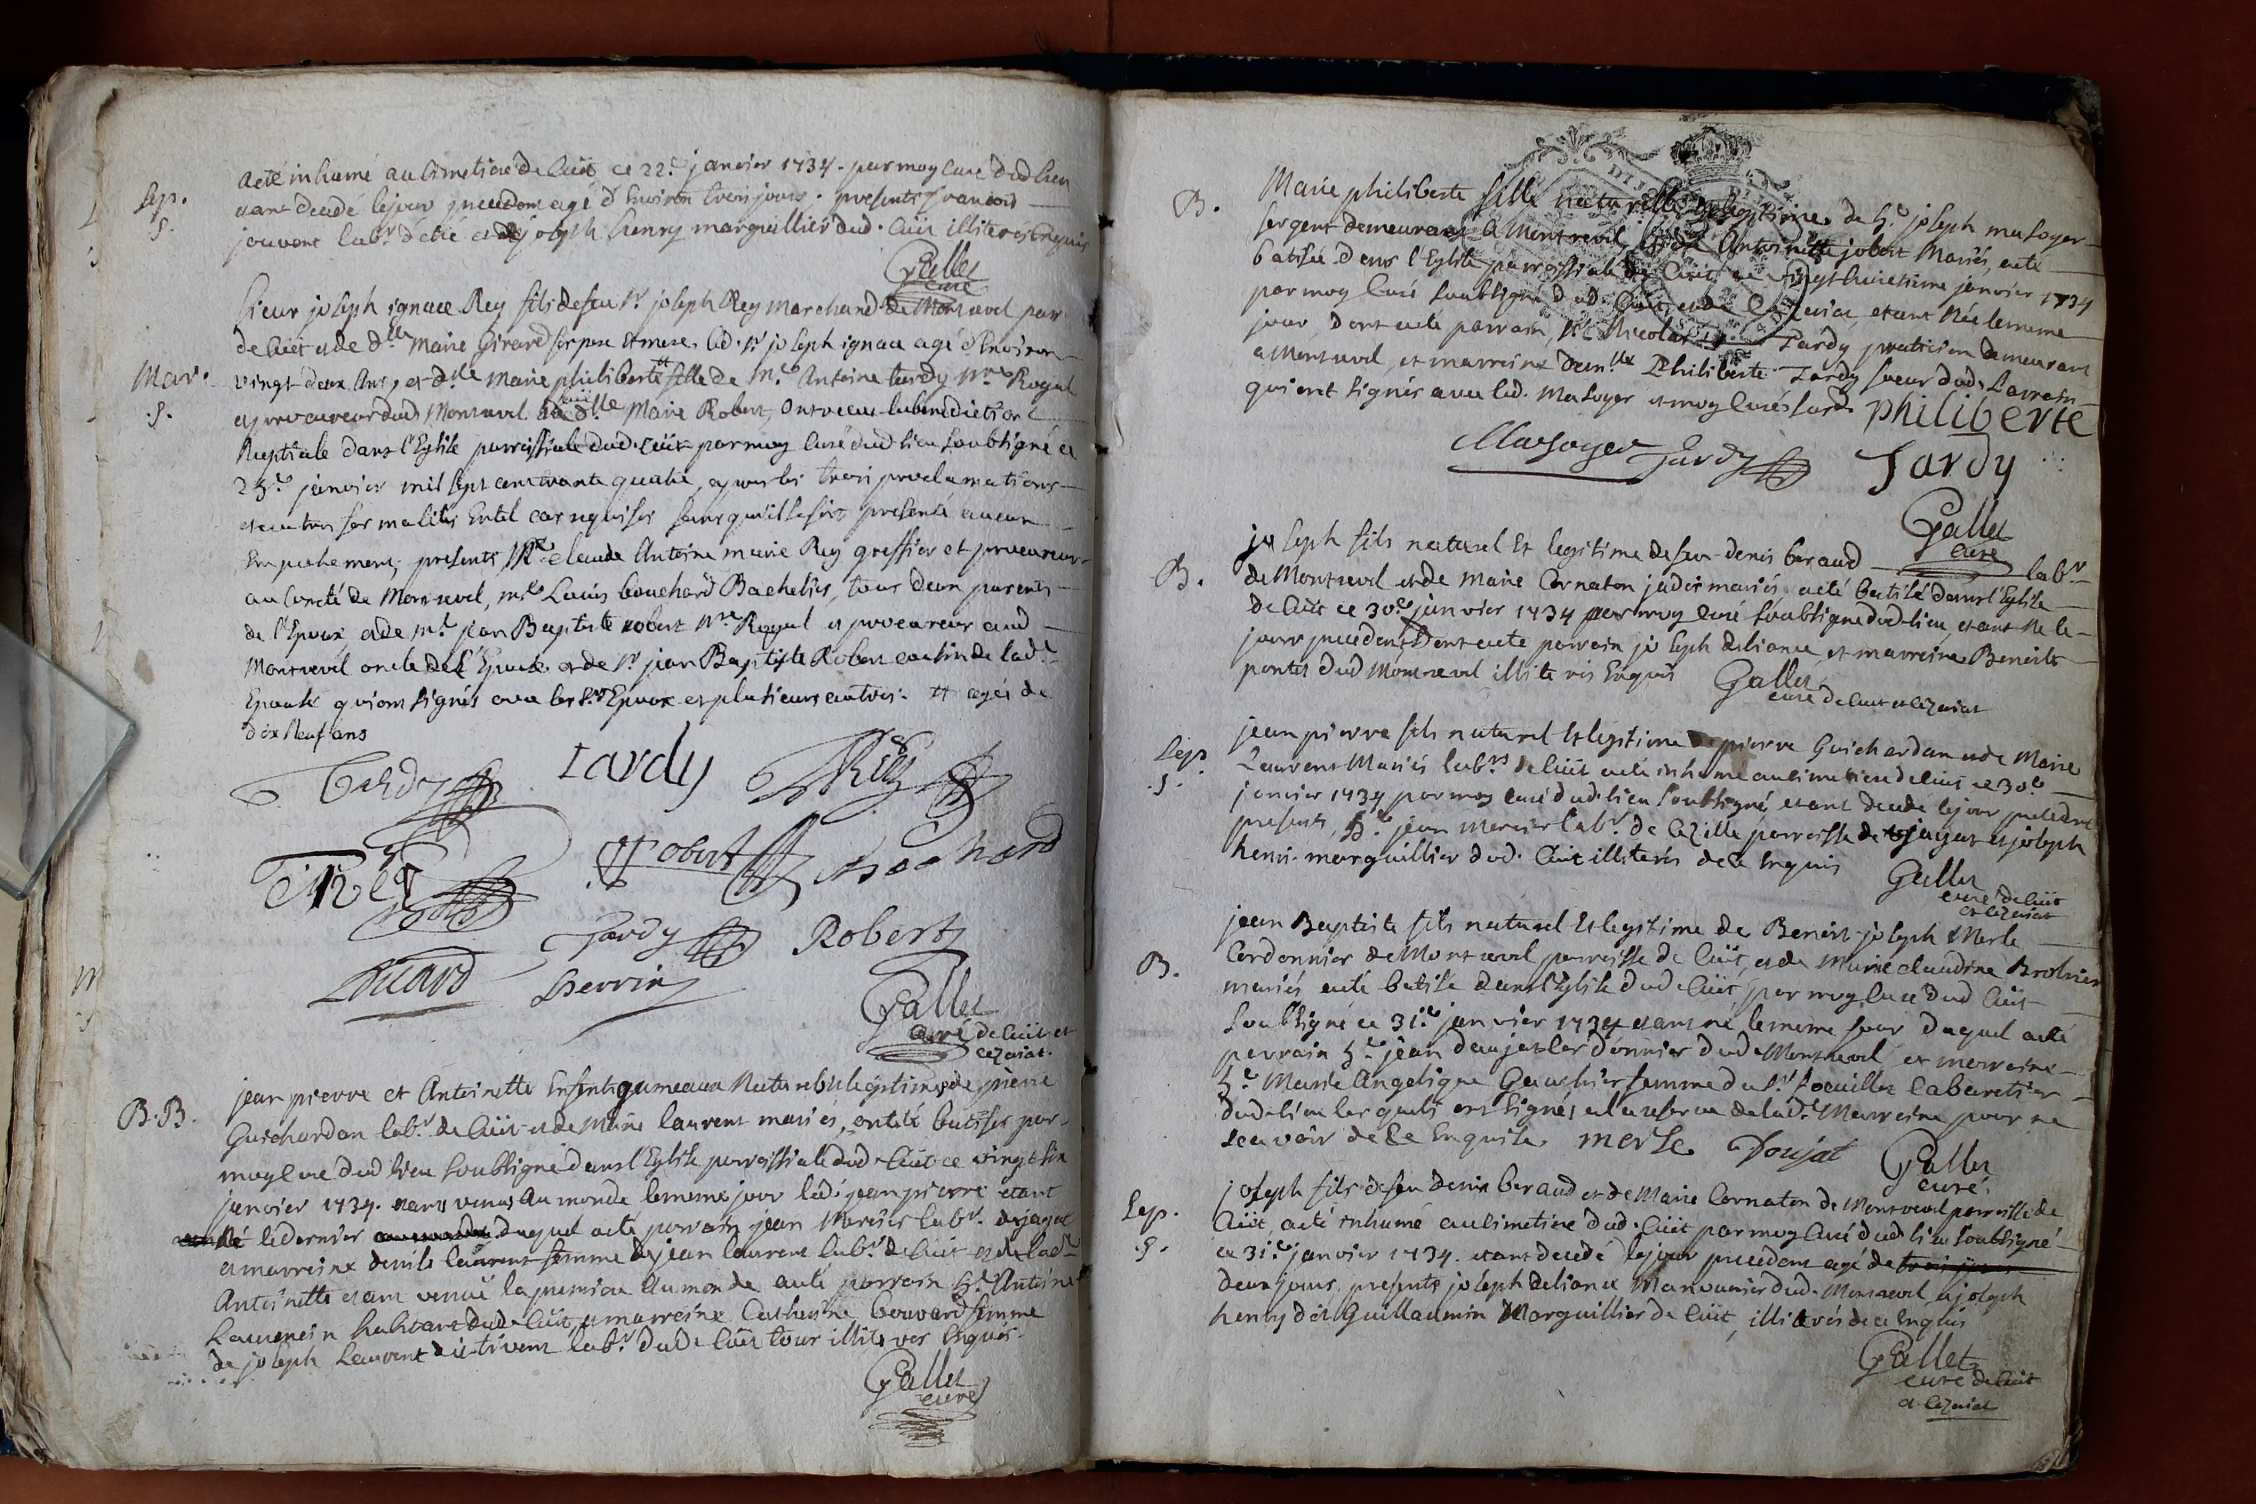 Sep.
S.
a eté inhumé au cimetiere de Cuët ce 22.e janvier 1734. par moy curé dud lieu
etant decedé le jour precedent agé d'Environ trois jours. presents françois
jouvent lab.r d'etré et joseph henry marguillier dud. Cuët illiteres Enquis
Gallet
curé
Mar.
.S.
Sieur joseph ignace Rey fils de feu Sr joseph Rey marchand de Montrevel par
de Cuët et de d.lle Marie Girard ses pere et mere led. Sr joseph ignace agé d'Environ
vingt deux Ans, et d.lle Marie philiberte # fille de M.e Antoine tardy N.re Royal
et procureur dud Montrevel et de d.lle Marie Robert, ont recus la benediction
Nuptiale dans l'Eglise parroissiale dud. Cuët par moy curé dud lieu soubsigné ce
janvier mil sept cent trente quatre, apres les trois proclamations
et autres formalités En tel cas requises sans qu'il se soit presenté aucun
Empechement, presents M.e claude Antoine marie Rey greffier et procureur
au Comté de Montrevel, m.e Louis bouchard Bachelier, tous deux parents
de l'Epoux et de m.e jean Baptiste robert N.re Royal et procureur aud
Montrevel oncle de l'Epouse et de Sr jean Baptiste Robert cousin de lad.e
Epouse qui ont signés avec les S.rs Epoux et plusieurs autres. # agée de
dix Neuf ans
Tardy
tardy
Rey
Rey
Robert
Bouchard
Tardy
Robert
Perrin
Gallet
curé de Cuët et
cezeriat.
B.B.
jean pierre et Antoinette Enfents gumeaux Naturels et legitimes de pierre
Guichardan lab.r de Cuët et de Marie laurent mariés, ont été batisés par
moy curé dud lieu soubsigné dans l'Eglise parroissiale dud. Cuët ce vingt six
janvier 1734. etants venus au monde le meme jour led. jean pierre etant
né le dernier duquel a eté parrain jean Mercier lab.r de jayat
et marreine denise laurent femme de jean laurent lab.r de Cuët et de lad.e
Antoinette etant venuë la premiere Au monde a eté parrain h.e Antoine
Laurencin habitant dud. Cuët, et marreine Catherine bouvard femme
de joseph Laurent dit tivent lab.r dud. Cuët tous illiteres Enquis.
Gallet
curé
B.
Marie philiberte fille naturelle et legitime de h.e joseph masoyer
sergent demeurant a Montrevel et de Antoinette jobert Mariés, a eté
batisée dans l'Eglise parroissiale de Cuët ce vingt huictieme janvier 1734
par moy Curé soubsigné dud. Cuët et de Cezeriat, etant Née le meme
jour, dont a eté parrain, Sr Nicolas Tardy praticien demeurant
a Montrevel, et marreine dem.lle Philiberte Tardy soeur dud. Parrain
qui ont signés avec led. Masoyer et moy Curé susd.
philiberte
Masoyer
Tardy
Tardy
Gallet
curé
B.
joseph fils naturel Et legitime de feu denis beraud lab.r
de Montrevel et de Marie Cornaton jadis mariés, a eté batisé dans l'Eglise
de Cuët ce 30.e janvier 1734 par moy curé soubsigné dud. lieu, etant Né le
jour precedent Dont a eté parrain joseph deliance, et marreine Benoite
pontet dud Montrevel illiteres Enquis
Gallet
curé de Cuët et Cezeriat
Sep.
.S.
jean pierre fils naturel Et legitime de pierre Guichardan et de Marie
Laurent Mariés lab.rs de Cuët a eté inhumé au cimetiere de Cuët ce 30.e
janvier 1734 par moy curé dud. lieu soubsigné, etant decedé le jour precedent
presents, h.e jean mercier lab.r de Cezille parroisse de jayat et joseph
henri marguillier dud. Cuët illiterés de ce Enquis
Gallet
curé de Cuët
et Cezeriat
B.
jean Baptiste fils naturel Et legitime de Benoit joseph Merle
Cordonnier de Montrevel parroisse de Cuët, et de Marie claudine Brolier
mariés a eté batisé dans l'Eglise dud. Cuët, par moy curé dud Cuët
soubsigné ce 31.e janvier 1734 etant né le meme jour duquel a eté
parrain h.e jean doujat Cordonnier dud. Montrevel et marreine
h.e Marie Angelique Gauthier femme du Sr Cabaretier
dud. lieu lesquels ont signés a la reserve de lad.e Marreine pour ne
scavoir de ce Enquise.
merle
Doujat
Gallet
curé
Sep.
.S.
joseph fils de feu denis beraud et de Marie Cornaton de Montrevel parroisse de
Cuët, a eté inhumé au cimetiere dud. Cuët par moy Curé dud lieu soubsigné
ce 31.e janvier 1734. etant decedé le jour precedent agé de trois jours
deux jours, presents joseph deliance Manouvrier dud. Montrevel, et joseph
henry dit Guillaumin Marguillier de Cuët, illiterés de ce Enquis
Gallet
curé de Cuët
et Cezeriat